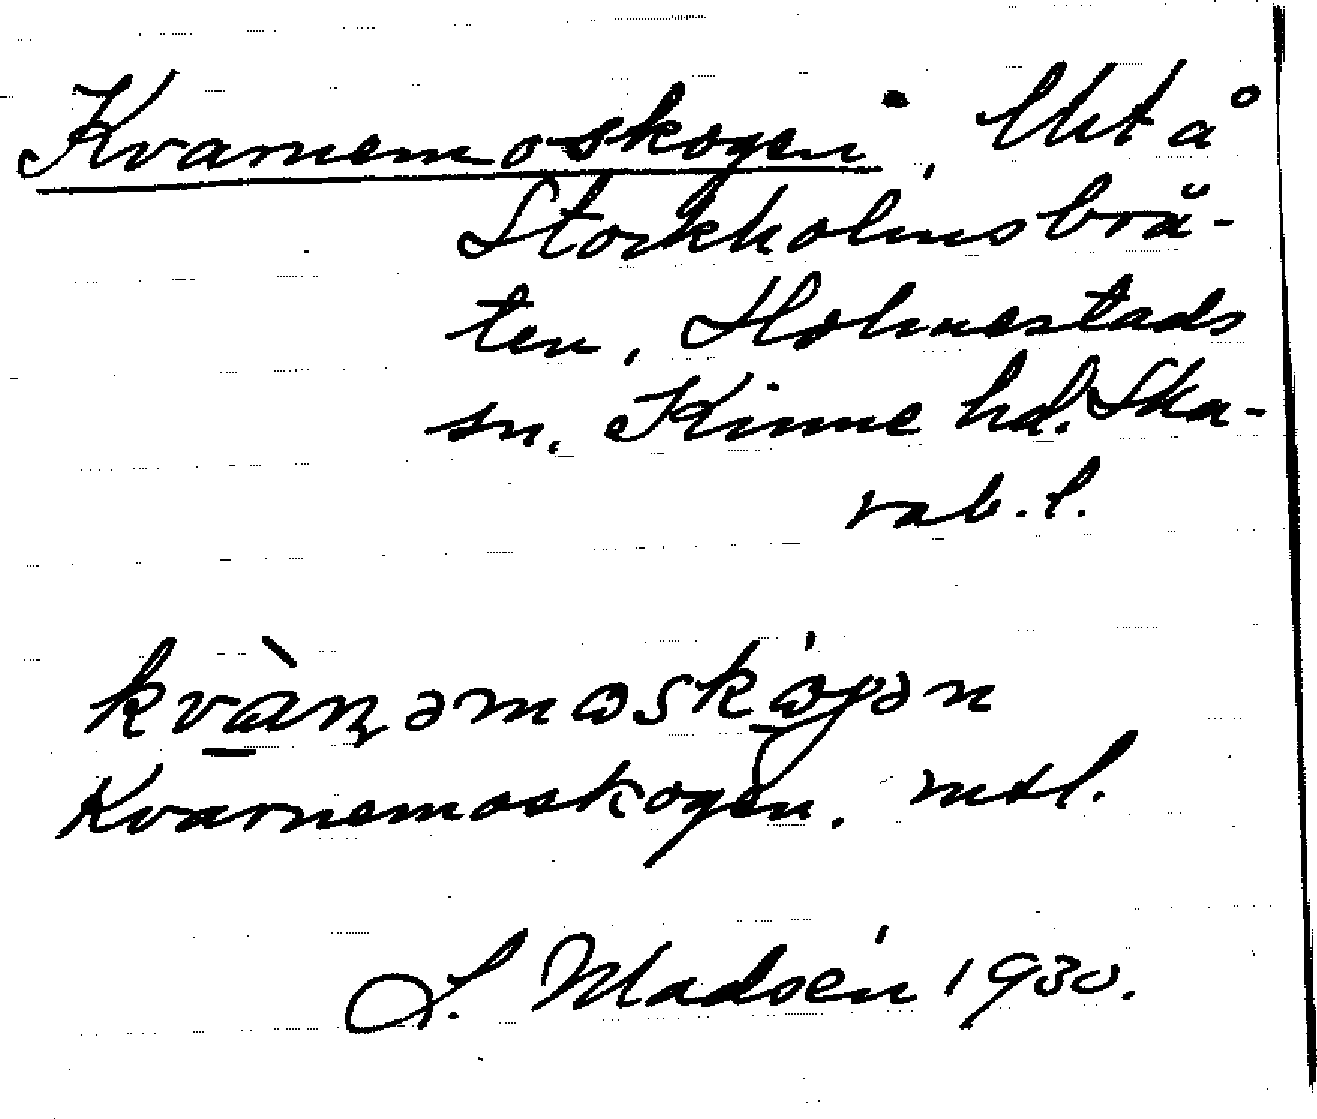 Kvarnemoskogen, Utå
Stockholmsbrå-
ten, Holmestads
sn. Kinne hd. Ska-
rab. l.
kvàɳəmoskó̱gən
Kvarnemoskogen. mtl.
S. Madsén 1930.